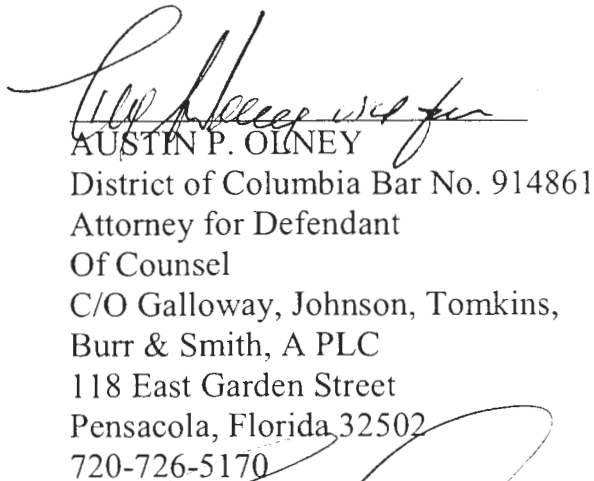 AUSTIN P. OLNEY
District of Columbia Bar No. 914861
Attorney for Defendant
Of Counsel
C/O Galloway, Johnson, Tomkins,
Burr & Smith, A PLC
118 East Garden Street
Pensacola, Florida 32502
720-726-5170